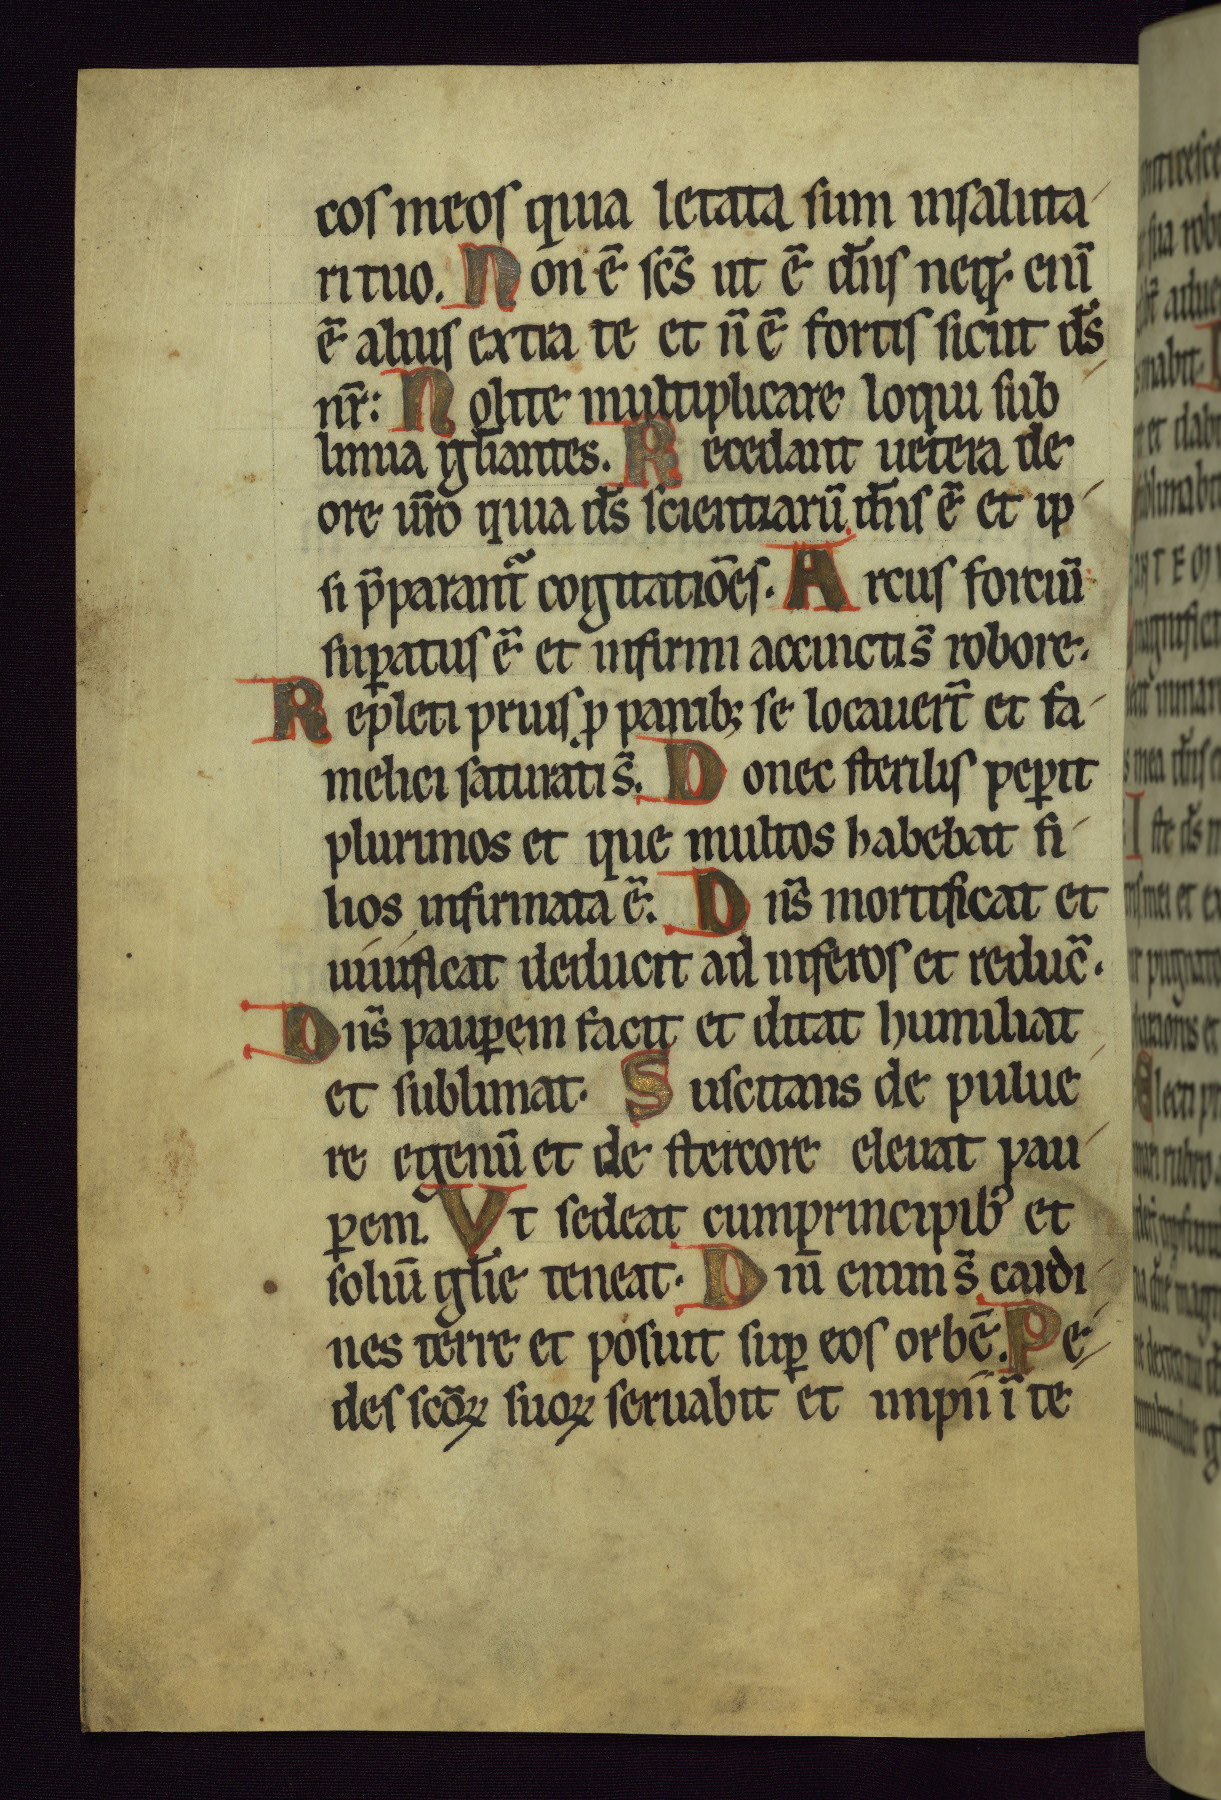 cos meos quia letata sum insaluta
ri tuo. Non ē sc̄s ut ē dn̄s neq; enī
ē alius extra te et n̄ ē fortis sicut ds̄
nr̄: Nolite multiplicare loqui sub
limia gl̄iantes. Recedant uetera de
ore ur̄o quia ds̄ scientiarū dn̄s ē et ip
si p̄parant᷑ cogitatiōes. Arcus forciū
suꝑatus ē et infirmi accincti s̄ robore.
Repleti prius ꝓ panib; se locauer̄t et fa
melici saturati s̄. Donec sterilis peꝑit
plurimos et que multos habebat fi
lios infirmata ē. Dn̄s mortificat et
uiuificat deducit ad inferos et reduc̄.
Dn̄s pauꝑem facit et ditat humiliat
et sublimat. Suscitans de pulue
re egenū et de stercore eleuat pau
ꝑem. Vt sedeat cum principib᷒ et
soliū gl̄ie teneat. Dn̄i enim s̄ cardi
nes terre et posuit suꝑ eos orbē. Pe
des sc̄oꝝ suoꝝ seruabit et impii ī te